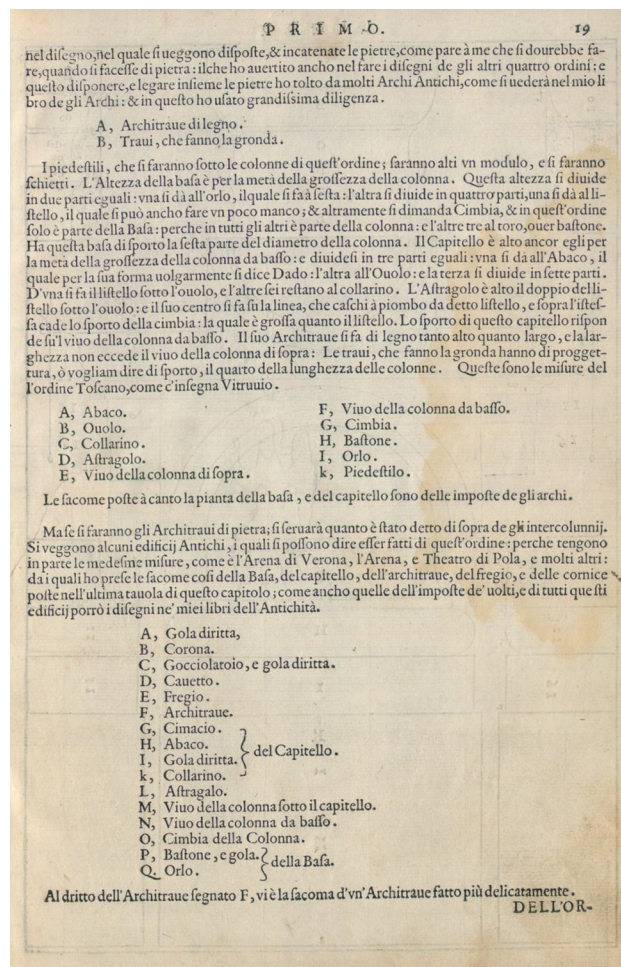 PRIMO. 19
nel diſegno, nel quale ſi ueggono diſpoſte, & incatenate le pietre, come pare à me che ſi dourebbe fa-
re, quando ſi faceſſe di pietra: ilche ho auertito ancho nel fare i diſegni de gli altri quattro ordini: e
queſto diſponere, e legare inſieme le pietre ho tolto da molti Archi Antichi, come ſi uederà nel mio li
bro de gli Archi: & in queſto ho uſato grandiſsima diligenza.
A, Architraue di legno.
B, Traui, che fanno la gronda.
I piedeſtili, che ſi faranno ſotto le colonne di queſt'ordine; ſaranno alti vn modulo, e ſi faranno
ſchietti. L'Altezza della baſa è per la metà della groſſezza della colonna. Queſta altezza ſi diuide
in due parti eguali: vna ſi dà all'orlo, ilquale ſi fa à ſeſta: l'altra ſi diuide in quattro parti, una ſi dà al li-
ſtello, il quale ſi può ancho fare vn poco manco; & altramente ſi dimanda Cimbia, & in queſt'ordine
ſolo è parte della Baſa: perche in tutti gli altri è parte della colonna: e l'altre tre al toro, ouer baſtone.
Ha queſta baſa di ſporto la ſeſta parte del diametro della colonna. Il Capitello è alto ancor egli per
la metà della groſſezza della colonna da baſſo: e diuideſi in tre parti eguali: vna ſi dà all'Abaco, il
quale per la ſua forma uolgarmente ſi dice Dado: l'altra all'Ouolo: e la terza ſi diuide in ſette parti.
D'vna ſi fa il liſtello ſotto l'ouolo, e l'altre ſei reſtano al collarino. L'Aſtragolo è alto il doppio del li-
ſtello ſotto l'ouolo: e il ſuo centro ſi fa ſu la linea, che caſchi à piombo da detto liſtello, e ſopra l'iſteſ-
ſa cade lo ſporto della cimbia: la quale è groſſa quanto il liſtello. Lo ſporto di queſto capitello riſpon
de ſu'l viuo della colonna da baſſo. Il ſuo Architraue ſi fa di legno tanto alto quanto largo, e la lar-
ghezza non eccede il viuo della colonna di ſopra: Le traui, che fanno la gronda hanno di progget-
tura, ò vogliam dire di ſporto, il quarto della lunghezza delle colonne. Queſte ſono le miſure del
l'ordine Toſcano, come c'inſegna Vitruuio.
A, Abaco.
B, Ouolo.
C, Collarino.
D, Aſtragolo.
E, Viuo della colonna di ſopra.
F, Viuo della colonna da baſſo.
G, Cimbia.
H, Baſtone.
I, Orlo.
k, Piedeſtilo.
Le ſacome poſte à canto la pianta della baſa, e del capitello ſono delle impoſte de gli archi.
Ma ſe ſi faranno gli Architraui di pietra; ſi ſeruarà quanto è ſtato detto di ſopra de gli intercolunnij.
Si veggono alcuni edificij Antichi, i quali ſi poſſono dire eſſer fatti di queſt'ordine: perche tengono
in parte le medeſme miſure, come è l'Arena di Verona, l'Arena, e Theatro di Pola, e molti altri:
da i quali ho preſe le ſacome coſi della Baſa, del capitello, dell'architraue, del fregio, e delle cornice
poſte nell'ultima tauola di queſto capitolo; come ancho quelle dell'impoſte de' uolti, e di tutti queſti
edificij porrò i diſegni ne' miei libri dell'Antichità.
A, Gola diritta,
B, Corona.
C, Gocciolatoio, e gola diritta.
D, Cauetto.
E, Fregio.
F, Architraue.
G, Cimacio.
H, Abaco.
I, Gola diritta.
k, Collarino.
del Capitello.
L, Aſtragalo.
M, Viuo della colonna ſotto il capitello.
N, Viuo della colonna da baſſo.
O, Cimbia della Colonna.
P, Baſtone, e gola.
Q. Orlo.
della Baſa.
Al dritto dell'Architraue ſegnato F, vi è la ſacoma d'vn'Architraue fatto più delicatamente.
DELL'OR-